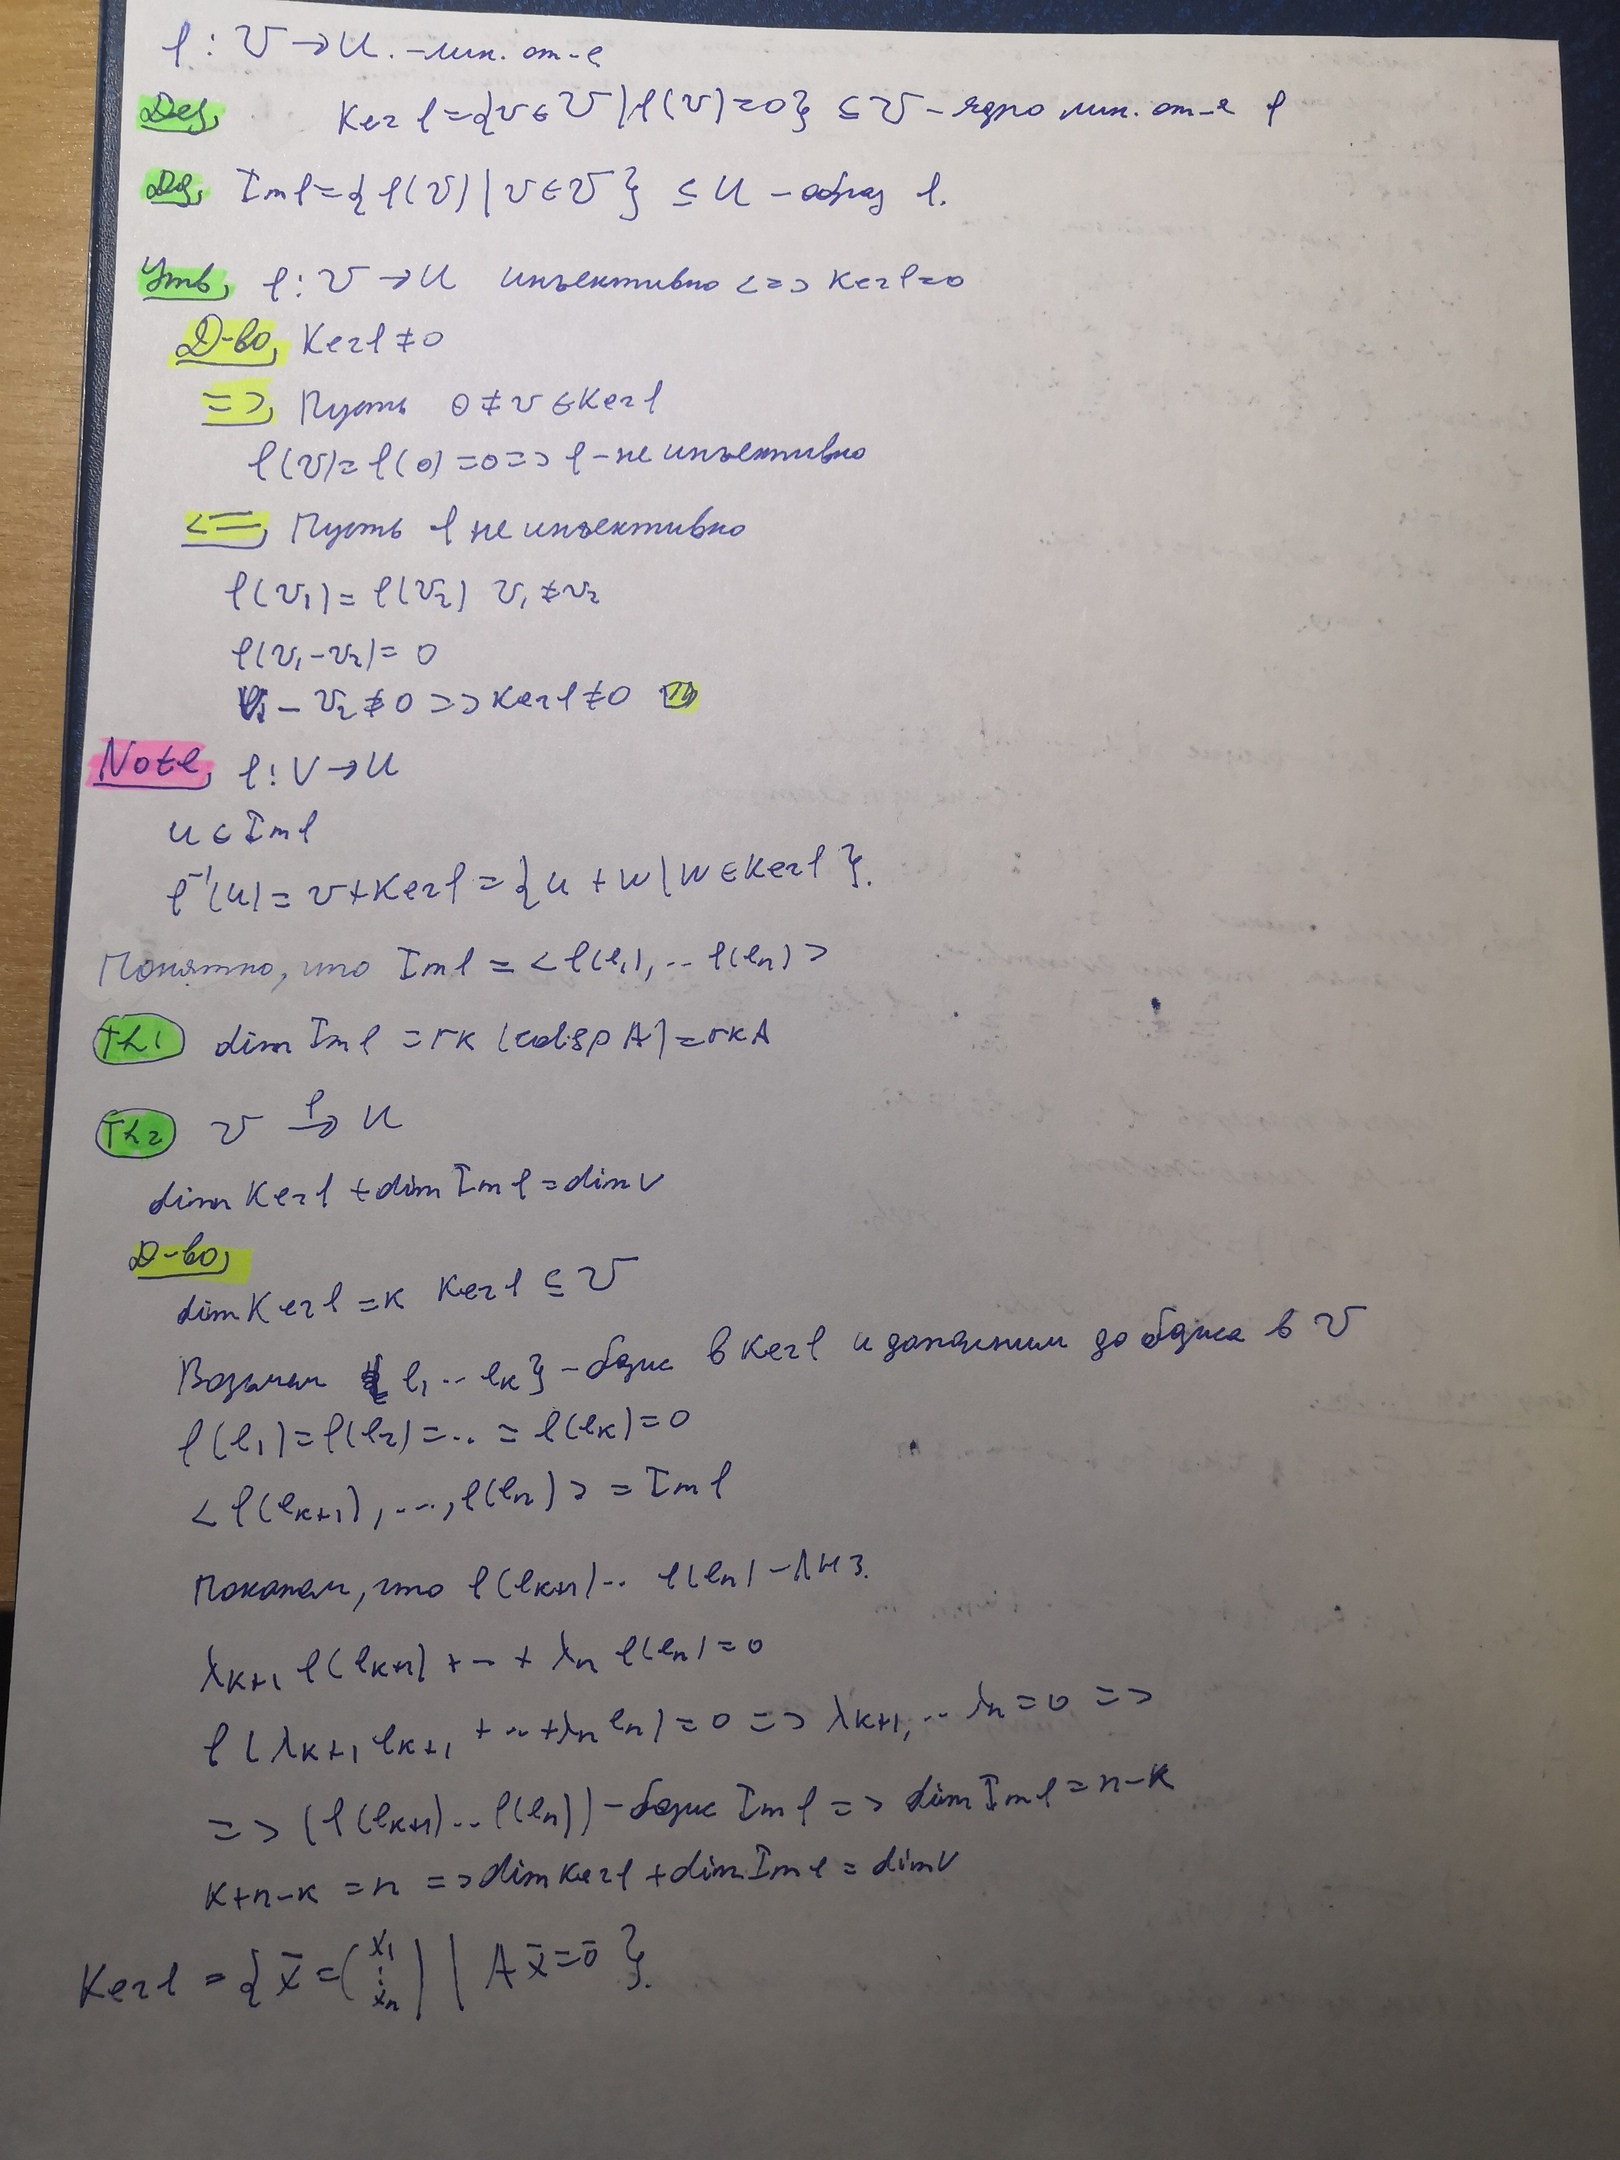 f : V → U. - лин. от-е
Def, Ker f = {v ∈ V | f(v) = 0} ⊆ V - ядро лин. от-я f
Def, Im f = { f(v) | v ∈ V } ⊆ U - образ f.
Утв, f : V → U инъективно <=> Ker f = 0
Д-во, Ker f ≠ 0
=>, Пусть 0 ≠ v ∈ Ker f
f(v) = f(0) = 0 => f - не инъективно
<=, Пусть f не инъективно
f(v₁) = f(v₂) v₁ ≠ v₂
f(v₁ - v₂) = 0
v₁ - v₂ ≠ 0 => Ker f ≠ 0
Note, f : V → U
u ∈ Im f
f⁻¹(u) = v + Ker f = { u + w | w ∈ Ker f }.
Понятно, что Im f = < f(e₁), .. f(eₙ) >
Th1 dim Im f = rk (colsp A) = rk A
Th2 V →ᶠ U
dim Ker f + dim Im f = dim V
Д-во,
dim Ker f = k Ker f ⊆ V
Возьмем { e₁ .. eₖ } - базис в Ker f и дополним до базиса в V
f(e₁) = f(e₂) = .. = f(eₖ) = 0
< f(eₖ₊₁), ..., f(eₙ) > = Im f
Покажем, что f(eₖ₊₁) .. f(eₙ) - ЛНЗ.
λₖ₊₁ f(eₖ₊₁) + .. + λₙ f(eₙ) = 0
f(λₖ₊₁ eₖ₊₁ + .. + λₙ eₙ) = 0 => λₖ₊₁, .. λₙ = 0 =>
=> (f(eₖ₊₁) .. f(eₙ)) - базис Im f => dim Im f = n - k
k + n - k = n => dim Ker f + dim Im f = dim V
Ker f = { x̄ = (x₁ ⋮ xₙ) | A x̄ = 0̄ }.